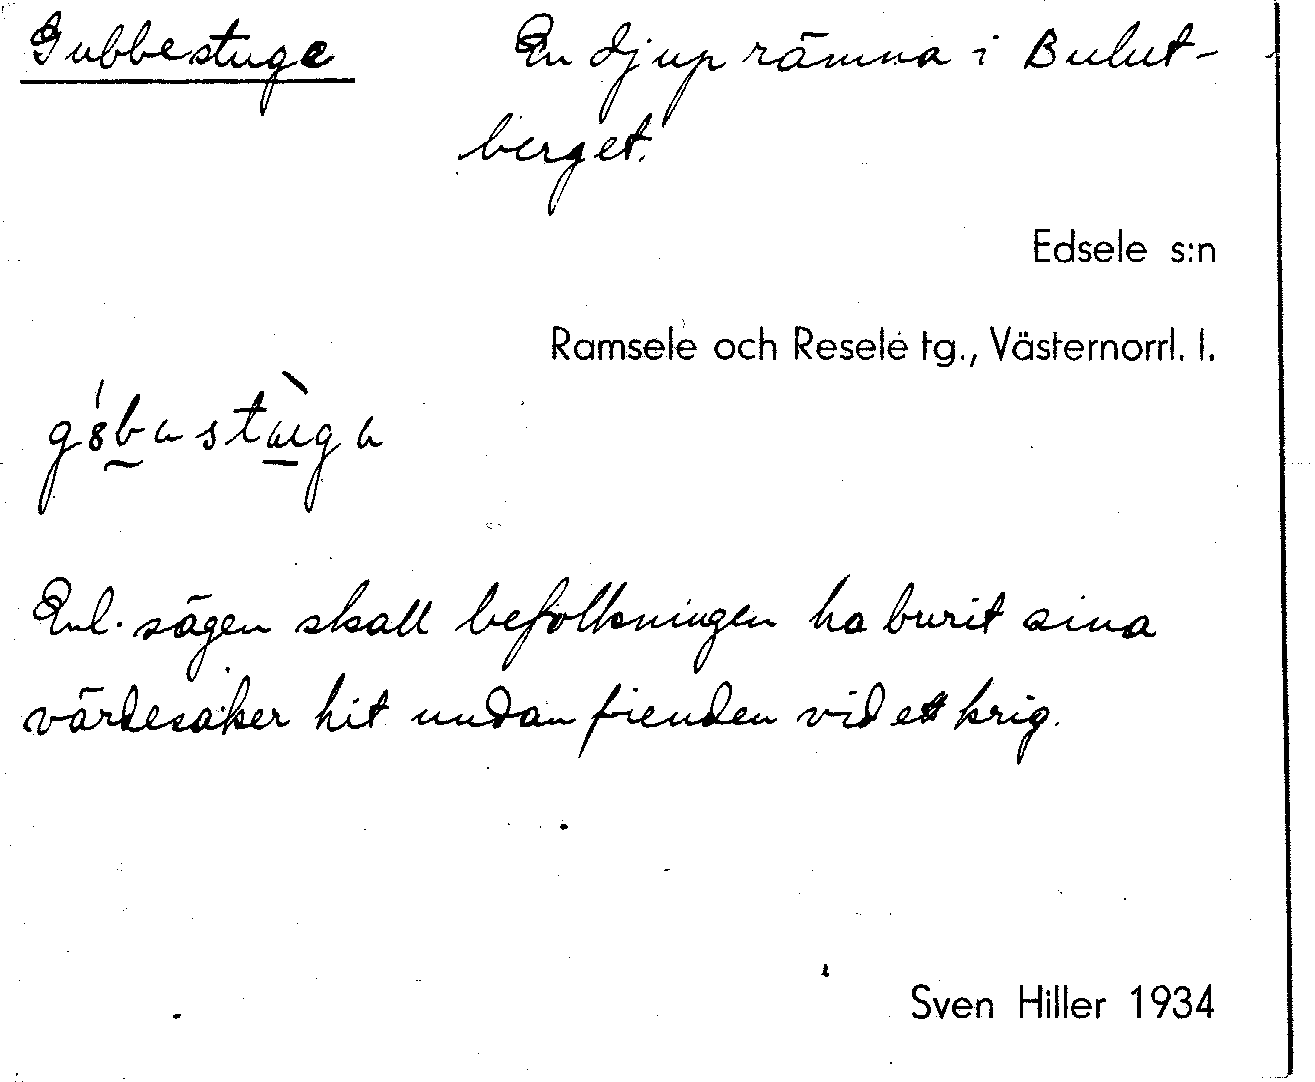 Gubbestuge En djup rämna i Bulut-
berget.
Edsele s:n
Ramsele och Resele tg., Västernorrl. l.
Enl. sägen skall befolkningen ha burit sina
värdesaker hit undan fienden vid ett krig.
Sven Hiller 1934